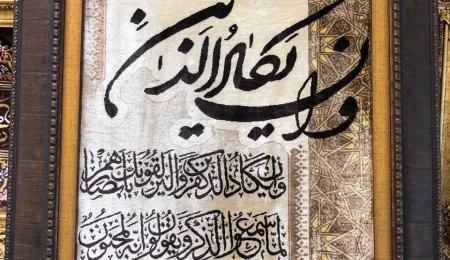 وان یکاد الذین
وان یکاد الذین کفروا لیزلقونک بابصارهم
لما سمعوا الذکر و یقولون انه لمجنون